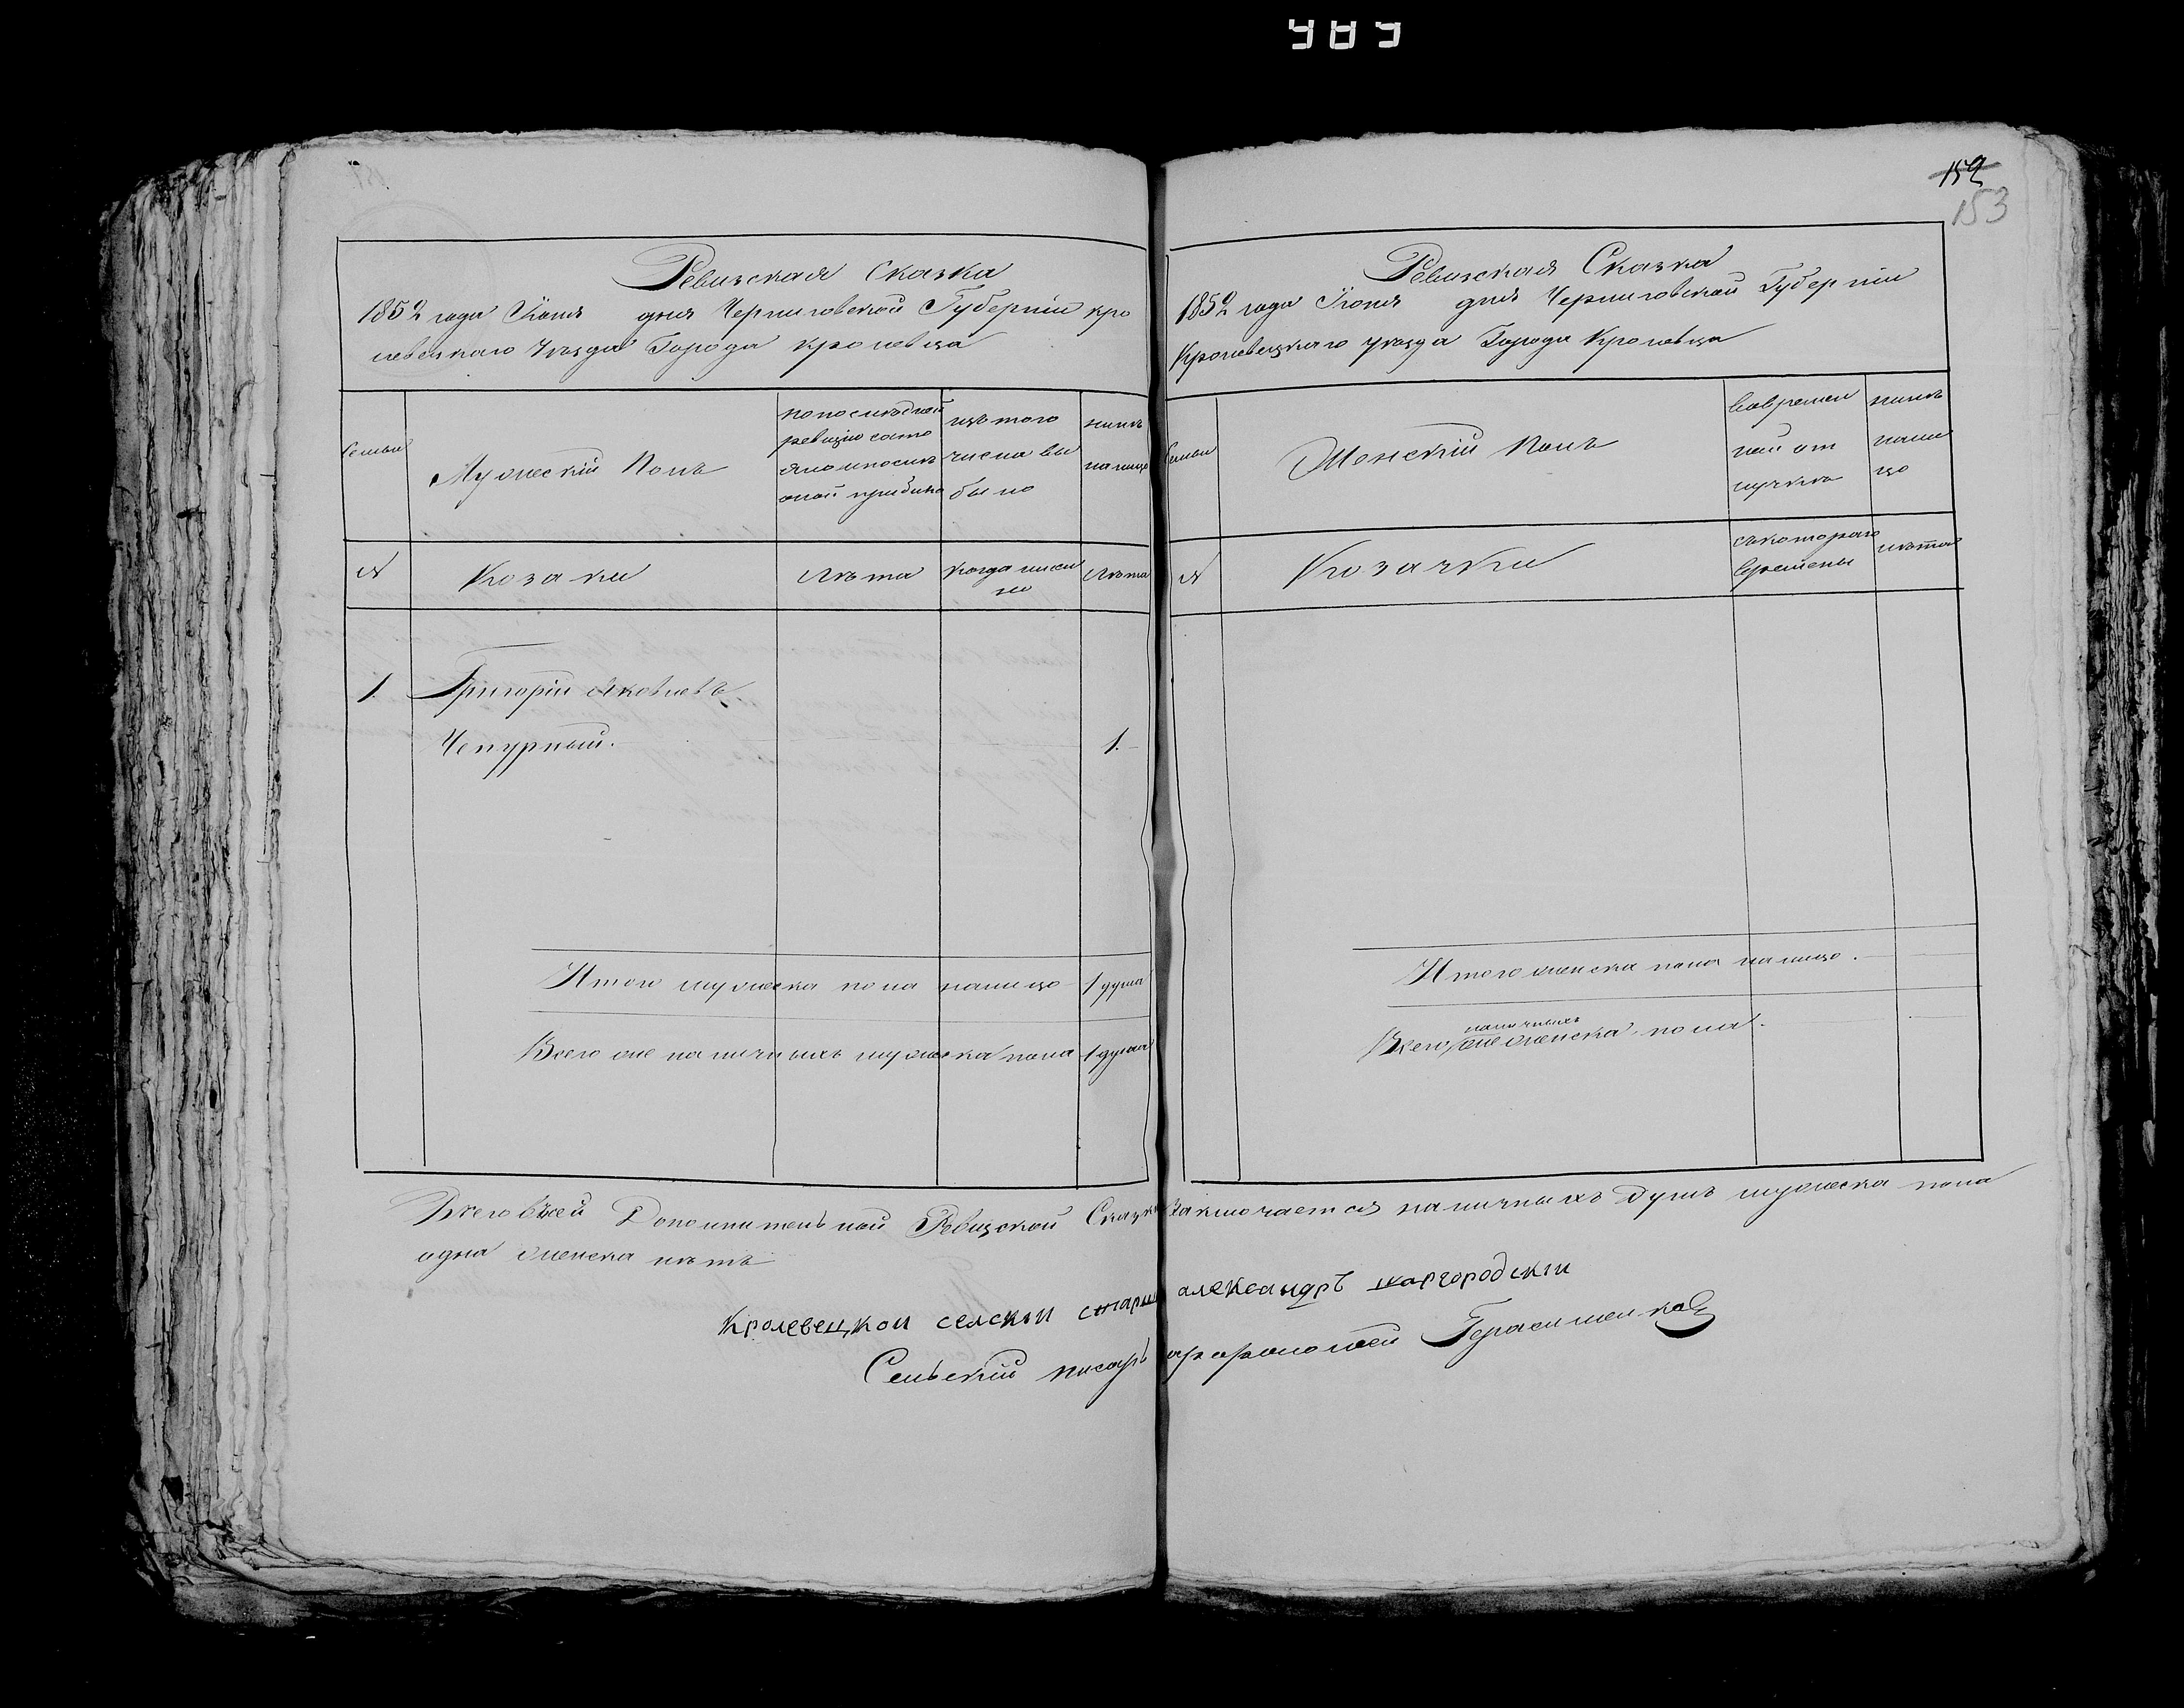 983
152
153
Ревизская Сказка
1852 года Июня дня Черниговской Губернiи кро
левецкаго Уѣзда Города Кролевца
Семьи
Мужескiй Полъ
по последней
ревизiи состо
яло и после
оной прибыло
изъ того
числа вы
было
нынѣ
налицо
№
Козаки
Лѣта
когда имен
но
Лѣта
1.
Григорiй Яковлевъ
Чепурный.
1.
Итого мужеска пола налицо 1 душа
Всего же наличныхъ мужеска пола 1 душа
Ревизская Сказка
1852 года Июня дня Черниговской Губернiи
Кролевецкаго уѣзда Города Кролевца
Семьи
Женскiй Полъ
вовремен
ной от
лучкѣ
нынѣ
нали
цо
№
Козачки
съкотораго
времены
лѣта
Итого женска пола налицо.
наличныхъ
Всего же женска пола.
Всего въсей Дополнительной Ревизской Сказки Заключается наличныхъ Душъ мужеска пола
одна женска нѣтъ
Кролевецкои селскии старш александръ шаргородскiи
Сельскiй писарь Герасименко